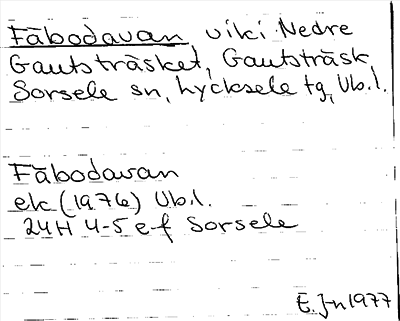 Fäbodavan, vik i Nedre
Gautsträsket, Gautsträsk,
Sorsele sn, Lycksele tg, Vb.l.
Fäbodavan
ek (1976) Vb.l.
24H 4-5 e-f Sorsele
E. J-n 1977